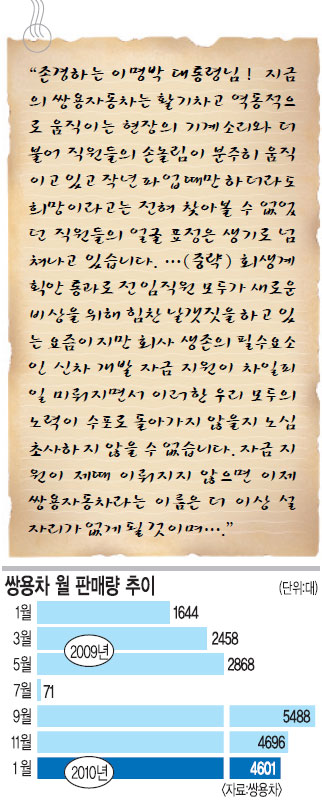 “존경하는 이명박 대통령님! 지금
의 쌍용자동차는 활기차고 역동적으
로 움직이는 현장의 기계소리와 더
불어 직원들의 손놀림이 분주히 움직
이고 있고 작년 파업때만 하더라도
희망이라고는 전혀 찾아볼 수 없었
던 직원들의 얼굴 표정은 생기로 넘
쳐나고 있습니다. …(중략) 회생계
획안 통과로 전 임직원 모두가 새로운
비상을 위해 힘찬 날갯짓을 하고 있
는 요즘이지만 회사 생존의 필수요소
인 신차 개발 자금 지원이 차일피
일 미뤄지면서 이러한 우리 모두의
노력이 수포로 돌아가지 않을지 노심
초사하지 않을 수 없습니다. 자금 지
원이 제때 이뤄지지 않으면 이제
쌍용자동차라는 이름은 더 이상 설
자리가 없게 될 것이며….”
쌍용차 월 판매량 추이 (단위:대)
1월 1644
3월 2458
2009년
5월 2868
7월 71
9월 5488
11월 4696
1월 2010년 4601
〈자료:쌍용차〉